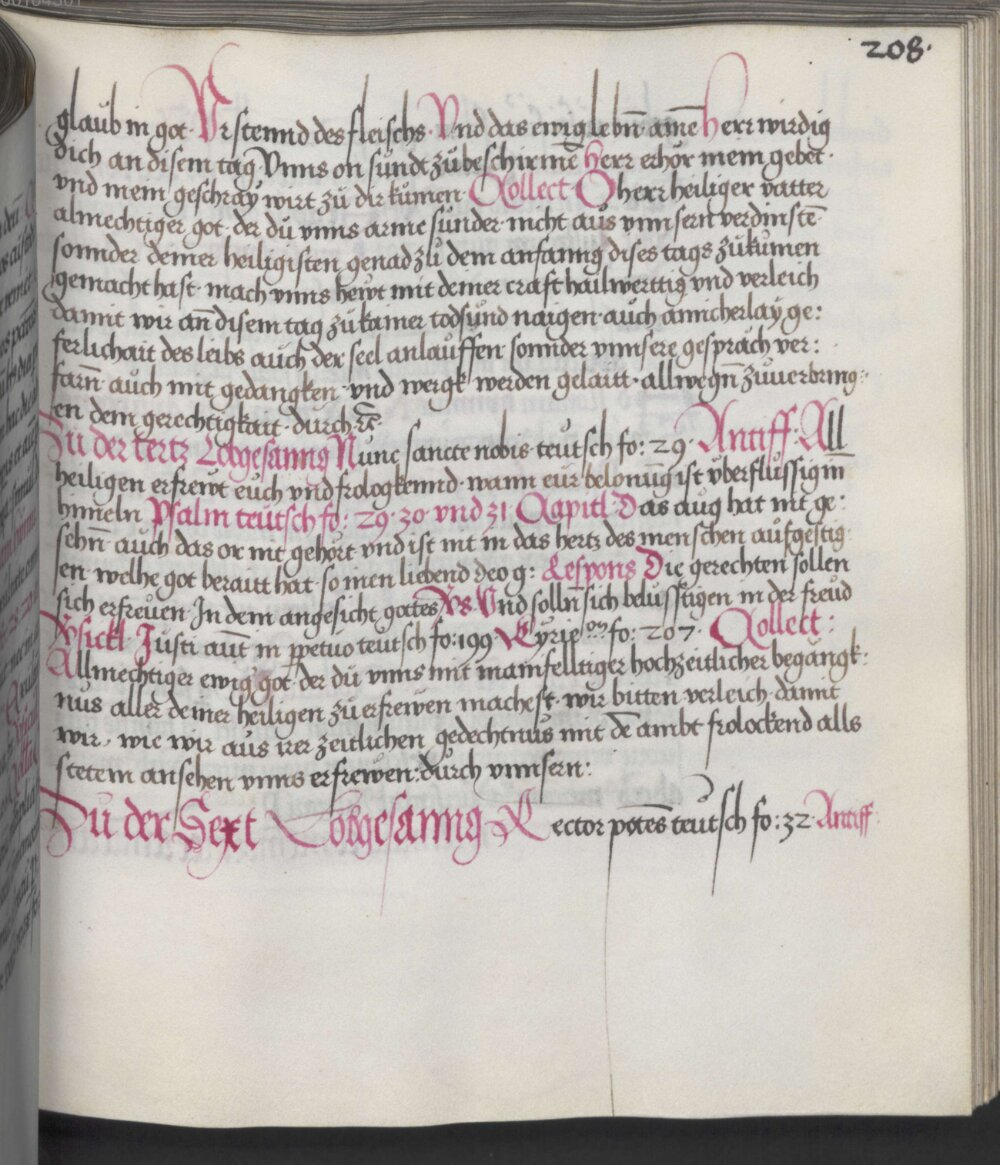 208.
glaub in got. Vrstennd des fleischs. Vnd das ewig lebn̄ amē Herr wirdig
dich an disem tag Vnns on sündt zübeschirmē Herr erhör mein gebet.
vnd mein geschray wirt zu dir kumen. Collect O herr heiliger vatter
almechtiger got. der dü vnns arme sünder. nicht aus vnnsern verdinstē
sonnder deiner heiligisten genad zü dem anfanng dises tags zükumen
gemacht hast. mach vnns hewt mit deiner craft hailwerttig vnd verleich
damit wir an disem tag zü kainer todsünd naigen. auch ainicherlay ge:
ferlichait des leibs auch der seel anlauffen sonnder vnnsere gespräch ver:
farn̄ auch mit gedangken vnd wergk werden gelaitt. allwegn̄ zuuerbring:
en dem gerechtigkait. durch ꝛc̄.
Zü der tertz Lobgesanng Nunc sancte nobis teutsch fo: 29. Antiff: All
heiligen erfrewt euch vnd frologkennd. wann eür belonūg ist vberflüssig in̄
himeln Psalm teütsch fo: 29. 30 vnd 31 Capitl Das aug hat nit ge:
sehn̄ auch das or nit gehört vnd ist nit in das hertz des menschen aufgestig
en. welhe got beraitt hat. so inen liebend deo g: Respons Die gerechten sollen
sich erfreuen. In dem angesicht gottes Vs Vnd solln̄ sich belüsstigen in der freud
Vsickl Justi aūt in ꝑpetuo teutsch fo: 199. Kyrieon fo: 207. Collect:
Allmechtiger ewig got. der dü vnns mit mainfelltiger hochzeitlicher begangk:
nus aller deiner heiligen zü erfrewen machest. wir bitten verleich. damit
wir, wie wir aus irer zeitlichen gedechtnüs mit dē ambt frolockend alls
stetem ansehen vnns erfrewen: durch vnnsern:
Zü der Sext Lobgesanng Rector potēs teutsch fo: 32. Antiff